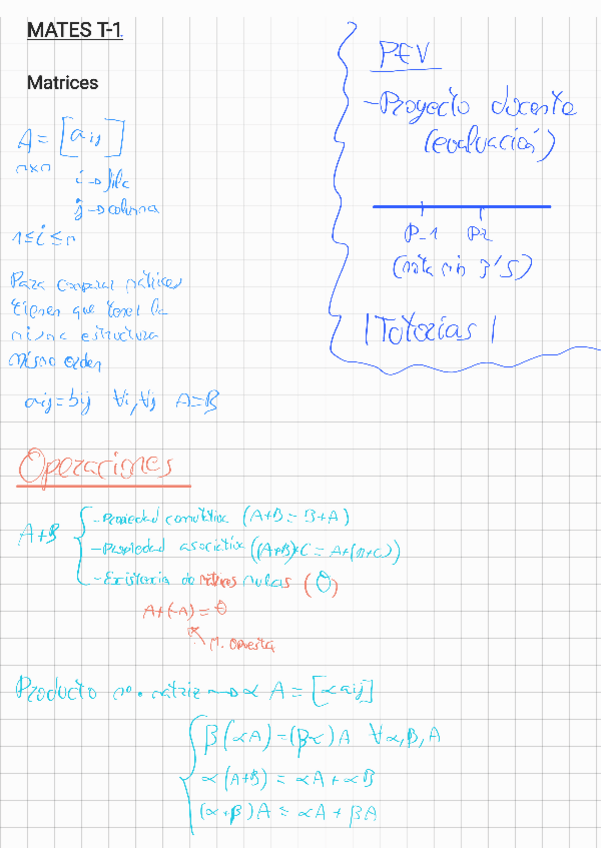 MATES T-1
Matrices
A = [aij]
n×n
i → fila
j → columna
1≤i≤n
Para comparar matrices
tienen que tener la
misma estructura
mismo orden
aij = bij ∀i,∀j A=B
PEV
-Proyecto docente
(evaluación)
P-1 P2
(nota min 3'5)
¡Tutorías!
Operaciones
A+B
-Propiedad conmutativa (A+B = B+A)
-Propiedad asociativa ((A+B)+C = A+(B+C))
-Existencia de matrices nulas (O)
A+(-A) = O
M. opuesta
Producto no. matriz → α A = [αaij]
β(αA) = (βα)A ∀α,β,A
α(A+B) = αA + αB
(α+β)A = αA + βA